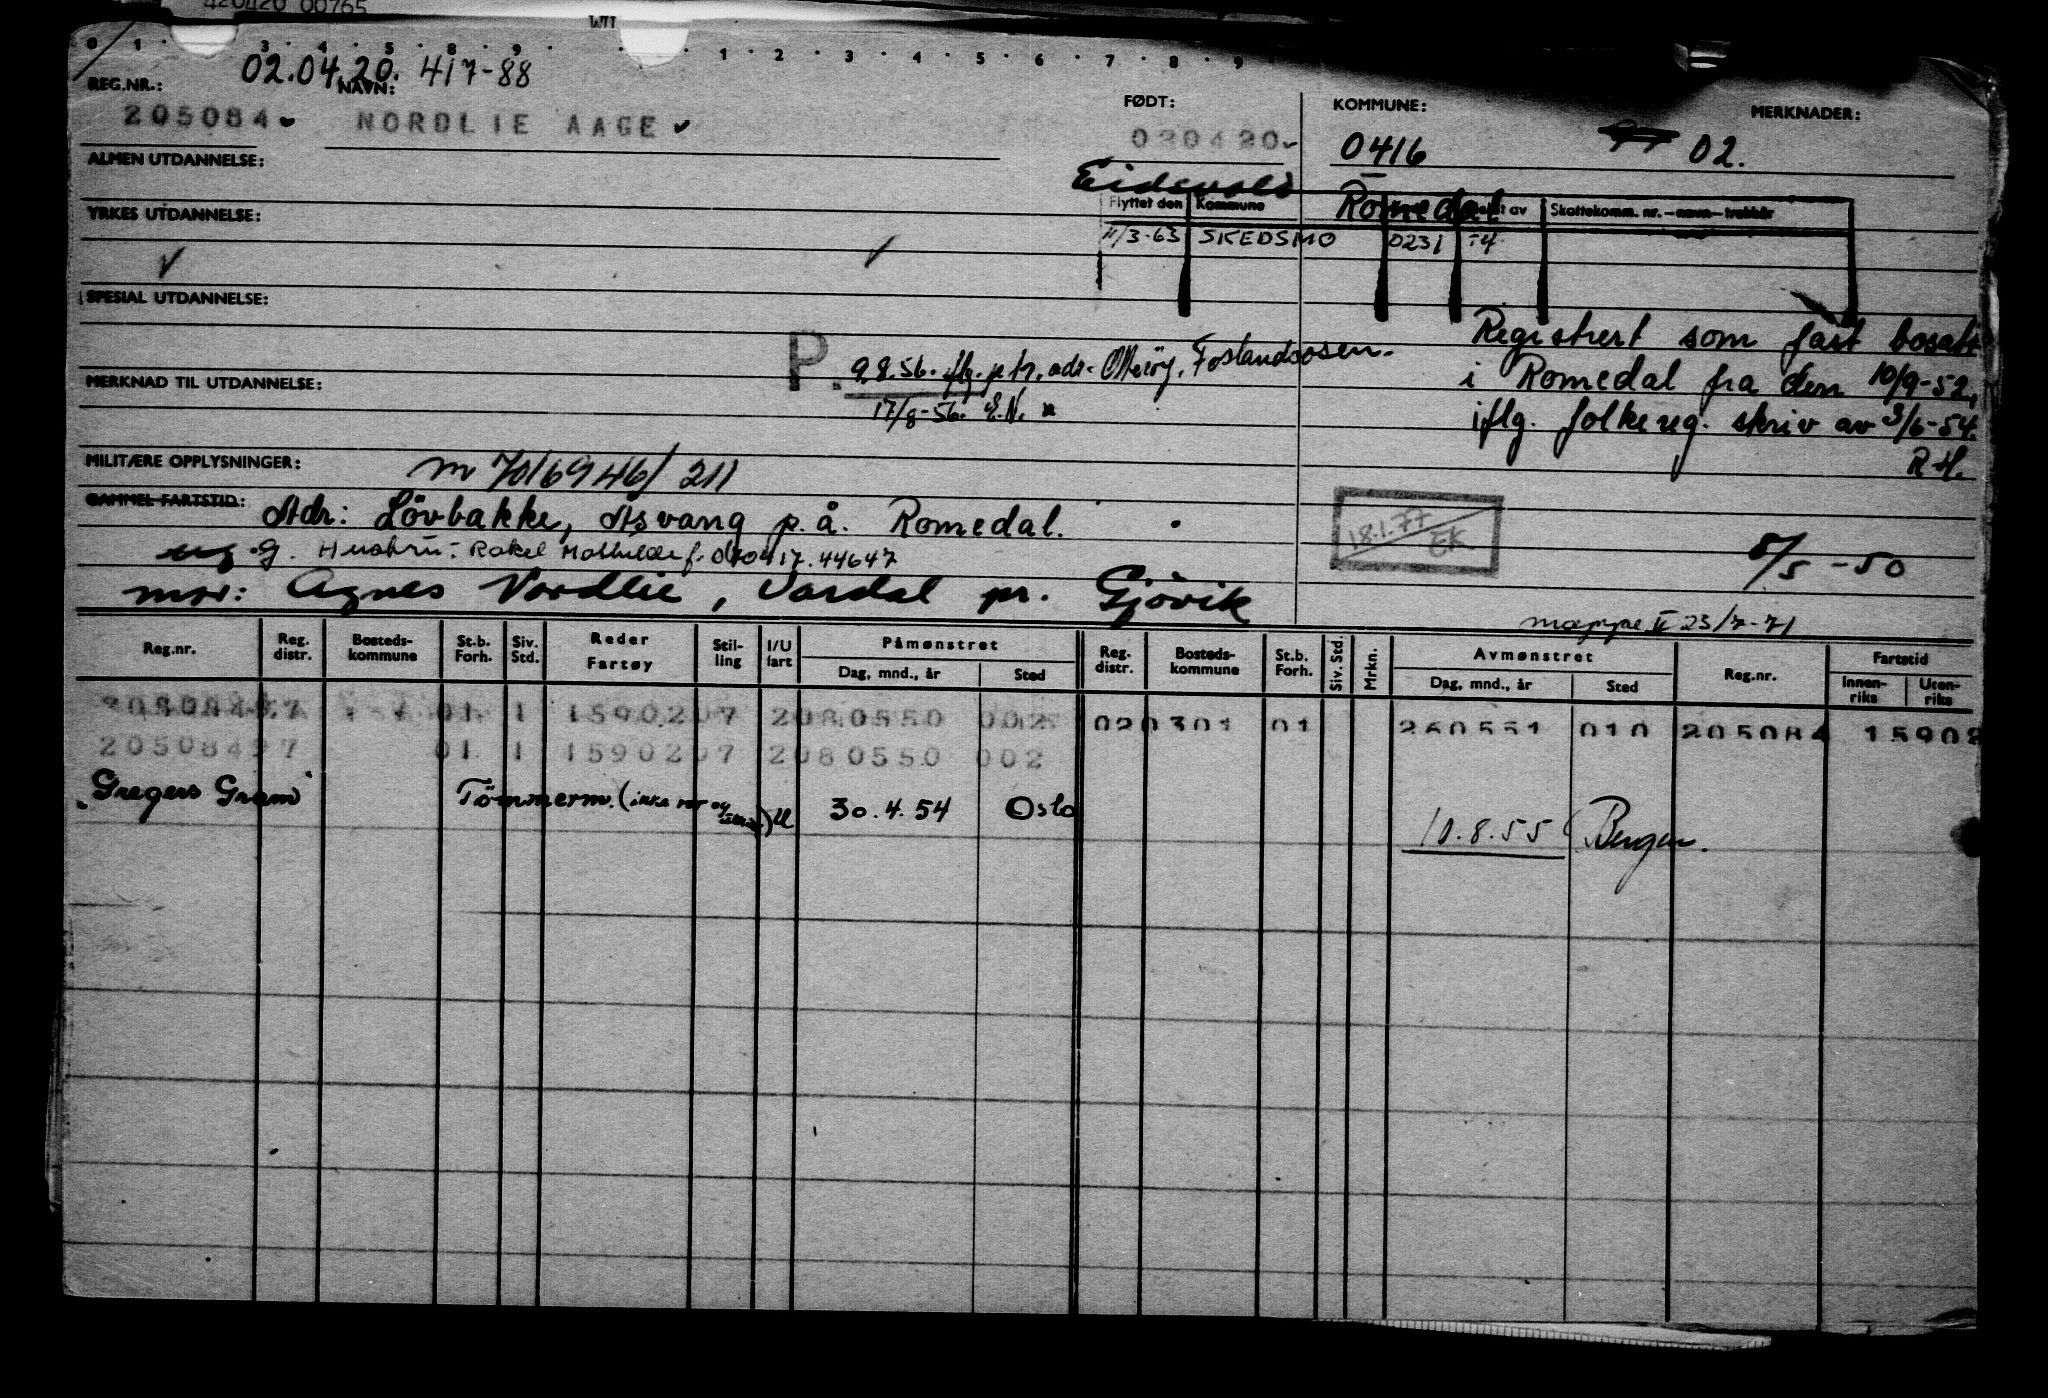 420420 00765
WTL
0 1 3 4 5 8 9 1 2 3 4 5 6 7 8 9
02.04.20. 417-88
REG.NR.: NAVN: FØDT: KOMMUNE: MERKNADER:
205084 NORDLIE AAGE 020420 0416 02.
ALMEN UTDANNELSE:
Eidsvold Romedal
Flyttet den Kommune av Skattekomm. nr. – navn – trekkår
YRKES UTDANNELSE:
11/3-63 SKEDSMO 0231 -4
SPESIAL UTDANNELSE:
Registrert som fast bosatt
P. 9.8.56. flg. p.kr. adr. Otteröy, Fostandsosen.
i Romedal fra den 10/9-52,
MERKNAD TIL UTDANNELSE:
17/8-56. E.N.
iflg. folkereg. skriv av 3/6-54.
R.H.
MILITÆRE OPPLYSNINGER: m 7016946/211
GAMMEL FARTSTID: Adr: Lövbakke, Åsvang p.å. Romedal.
18.1.77
EK
ug. g. Hustru: Rakel Mathilde f. 070417.44647
8/5-50
mor: Agnes Nordlie, Vardal pr. Gjövik
mappe II 23/7-71
Reg.nr. Reg. distr. Bosteds-kommune St.b. Forh. Siv. Std. Reder Fartøy Stil-ling I/U fart Påmønstret Dag, mnd., år Sted Reg. distr. Bosteds-kommune St.b. Forh. Siv. Std. Mrkn. Avmønstret Dag, mnd., år Sted Reg.nr. Fartstid Innen-riks Uten-riks
205084 97 01 1 1590207 2080550 002 020301 01 260551 010 205084 15902
205084 97 01 1 1590207 2080550 002
Gregers Gram Tömmerm. U 30.4.54 Oslo
10.8.55 Bergen.